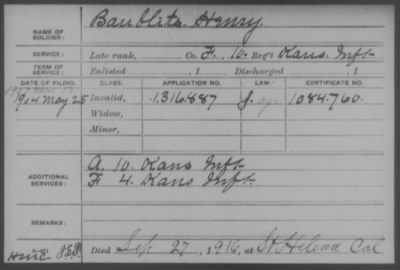 NAME OF SOLDIER: Baublits Henry
SERVICE: Late rank, Co. F, 10 Reg't Kans. Inft.
TERM OF SERVICE: Enlisted , 1 Discharged , 1
DATE OF FILING. CLASS. APPLICATION NO. CERTIFICATE NO.
1904 May 25 Invalid, 1,316.887 J. 1084.760.
Widow,
Minor,
ADDITIONAL SERVICES: A. 10. Kans Inft.
F 4. Kans Inft.
REMARKS:
Died Sep 27, 1916, at St Helena Cal